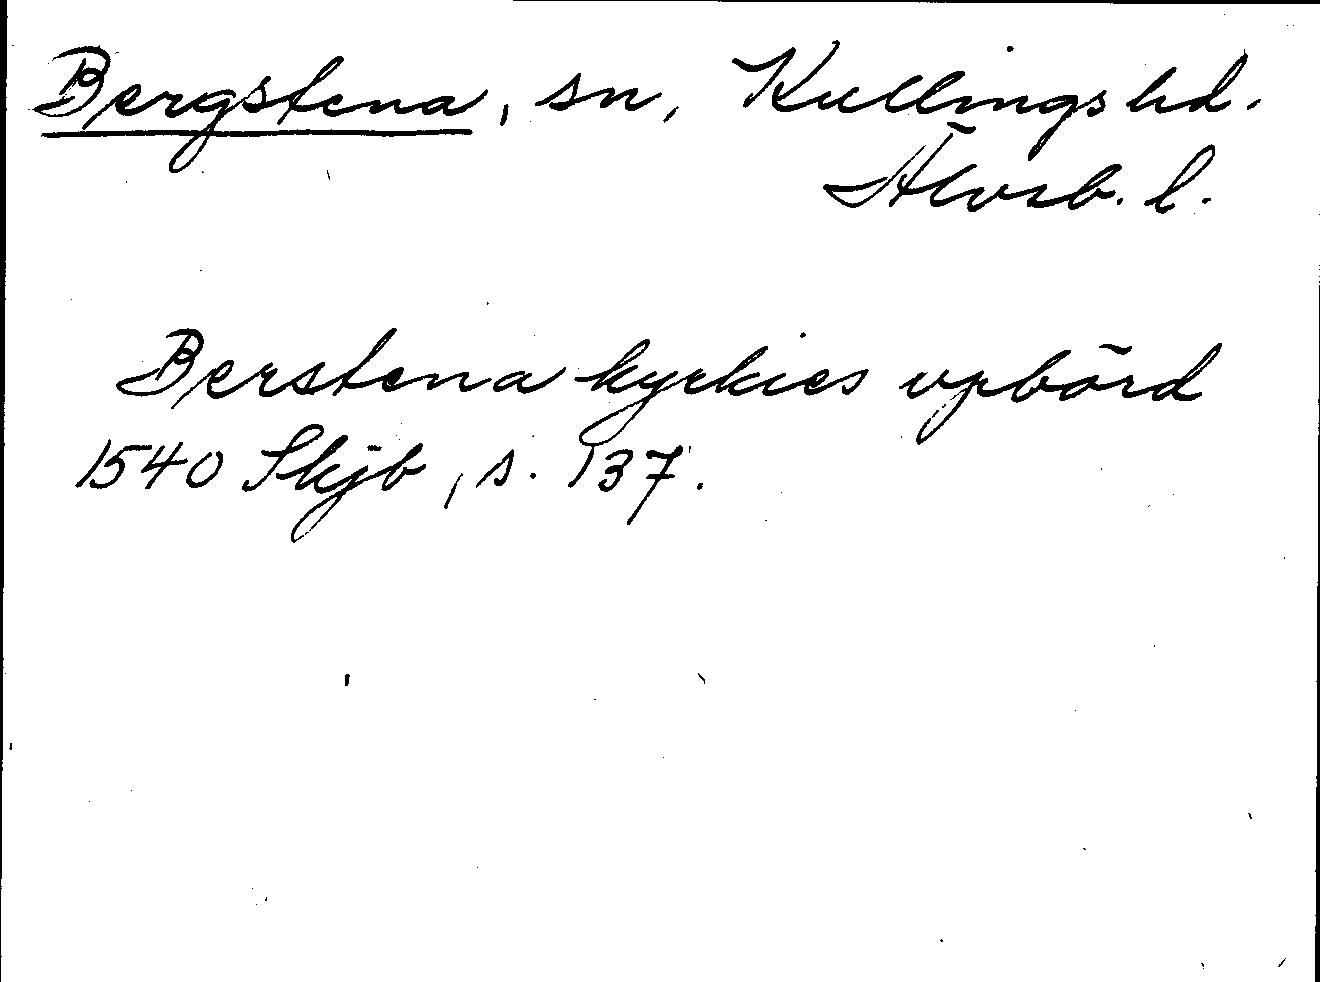 Bergstena, sn, Kullings hd.
Älvsb. l.
Berstena kyrkies vpbörd
1540 Skjb, s. 137.